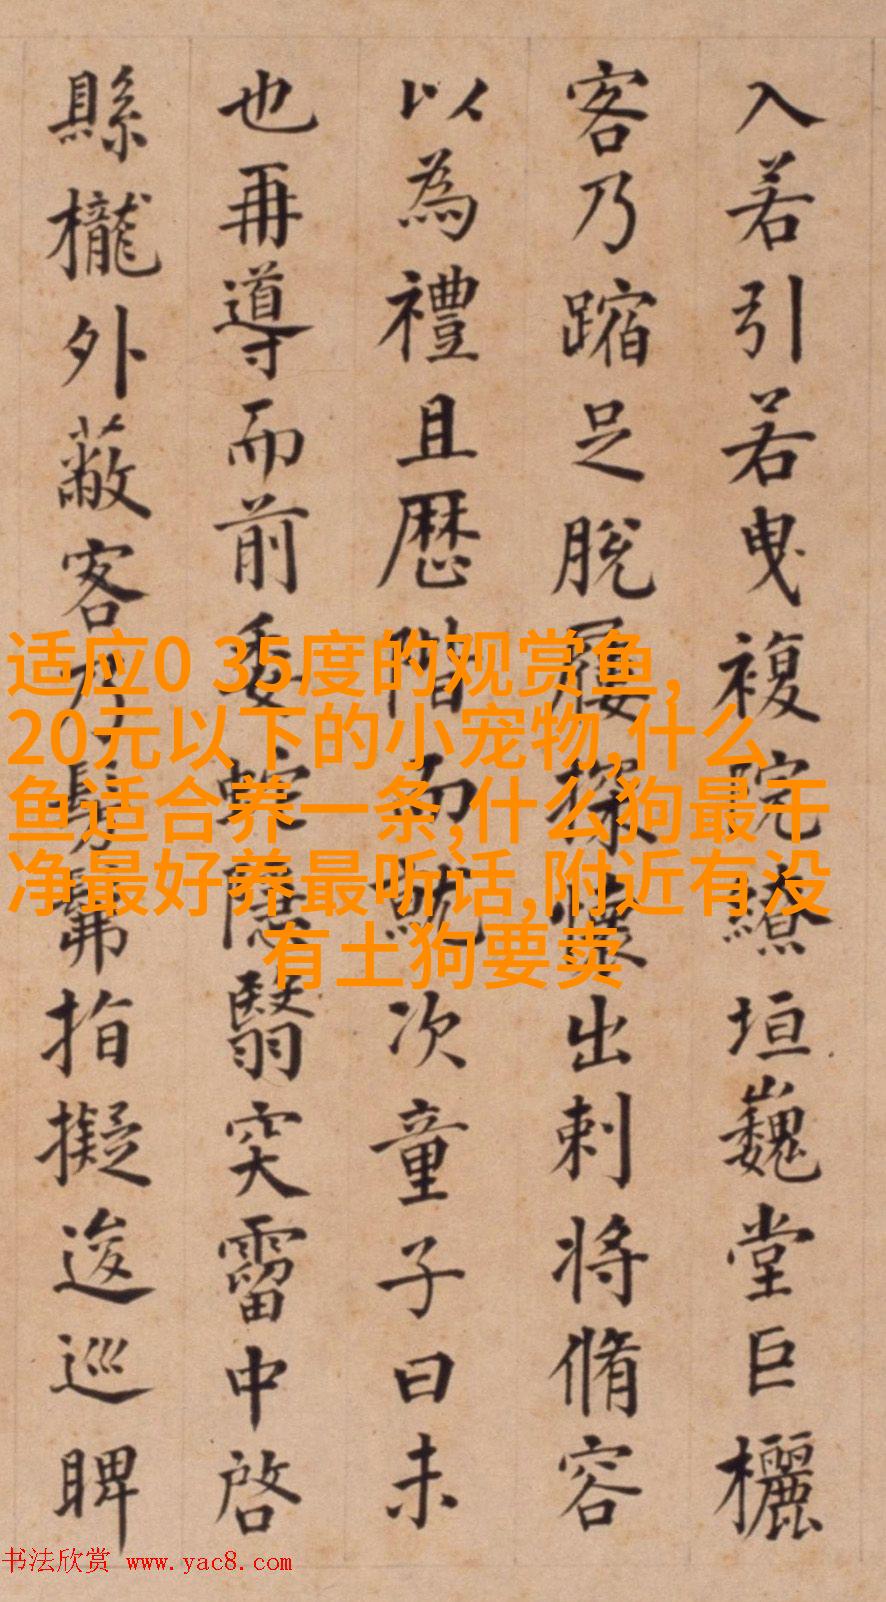 入若引若曳複院繚垣巍堂巨欐
客乃蹜足脫屨探懷出刺將脩容
以為禮且歷階而就次童子曰未
也再導而前委蛇隱翳突霤中啓
縣櫳外蔽客乃髣髴指擬逡巡睥
适应0 35度的观赏鱼,
20元以下的小宠物,什么
鱼适合养一条,什么狗最干
净最好养最听话,附近有没
有土狗要卖
书法欣赏 www.yac8.com